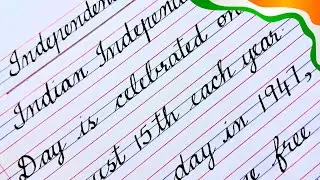 Independen
Indian Independ
Day is celebrated on
ust 15th each year.
day in 1947,
e free